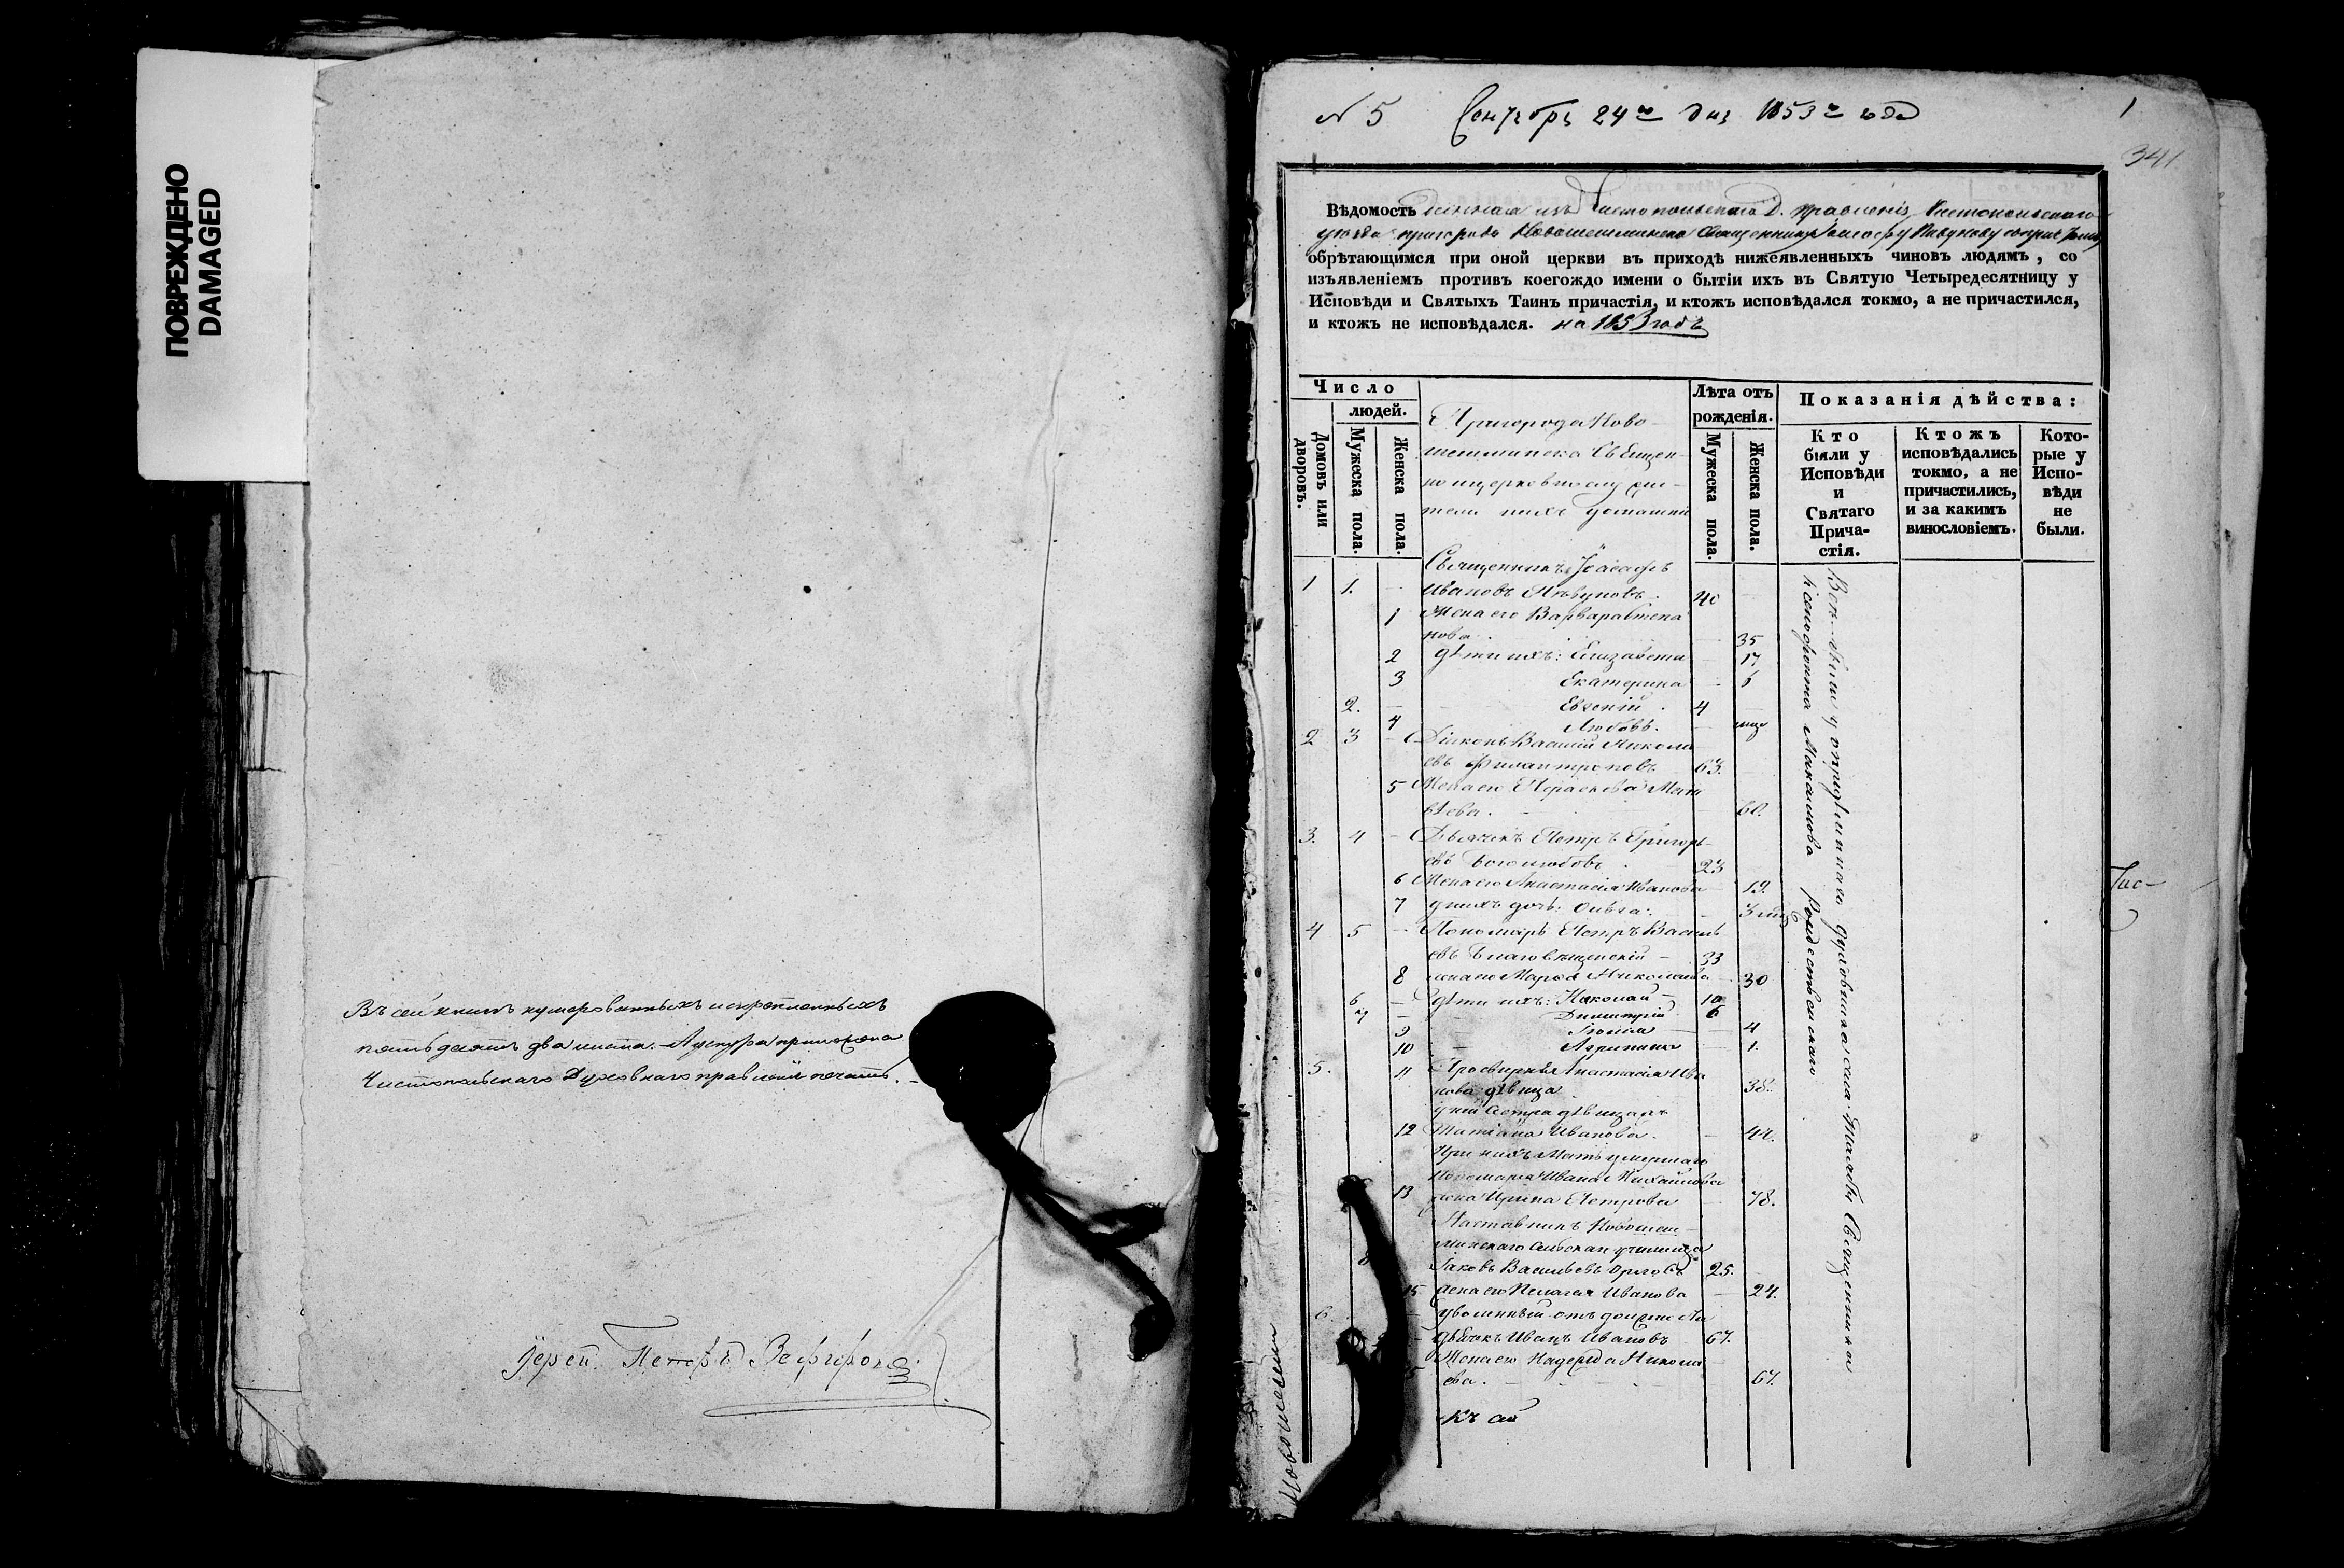 ПОВРЕЖДЕНО
DAMAGED
Въ сей книгѣ нумерованныхъ и скрѣпленныхъ
пятьдесятъ два листа. - А у шнура приложена
Чистопольскаго Духовнаго правленія печать. -
Іерей Петръ Зефировъ
N 5 Сентября 24го дня 1853го года
1
341
Вѣдомость данная изъ Чистопольскаго Д. правленія Чистопольскаго
уѣзда пригорода Новошешминска Священнику Іоасафу Пѣвунову
обрѣтающимся при оной церкви въ приходѣ нижеявленныхъ чиновъ людямъ, со
изъявленіемъ противъ коегождо имени о бытіи ихъ въ Святую Четыредесятницу у
Исповѣди и Святыхъ Таинъ причастія, и ктожъ исповѣдался токмо, а не причастился,
и ктожъ не исповѣдался. на 1853 годъ
Число
людей.
Домовъ или дворовъ.
Мужеска пола.
Женска пола.
Пригорода Ново-
шешминска Священ-
но и церковнослужи-
тели и ихъ домашніи
Лѣта отъ
рожденія.
Мужеска пола.
Женска пола.
Показанія дѣйства:
Кто
были у
Исповѣди
и
Святаго
Прича-
стія.
Ктожъ
исповѣдались
токмо, а не
причастились,
и за какимъ
винословіемъ.
Кото-
рые у
Испо-
вѣди
не
были.
Священникъ Іоасафъ
1 1. - Ивановъ Пѣвуновъ. 40
1 Жена его Варвара Степа
нова. 35
2 дѣти ихъ: Елизавета - 17
3 Екатерина - 6
2. - Евгеній. 4
4 Любовь. -
2 3 - Діаконъ Василій Никола
евъ Филантроповъ 63.
5 Жена его Параскева Мат
вѣева. 60.
3. 4 - Дьячекъ Петръ Григорь-
евъ Боголюбовъ. 23
6 Жена его Анастасія Иванова - 19.
7 у нихъ дочь: Ольга: - 3
4 5 - Пономарь Петръ Василь
евъ Благовѣщенскій - 33
8 жена его Марѳа Николаева - 30
6 - дѣти ихъ: Николай - 10
7 - Димитрій 6
9 - 4
10 - Агрипина - 1.
5. 11 Просвирня Анастасія Ива
нова дѣвица 38.
у ней сестра дѣвица
12 Татіана Иванова. - 42.
При нихъ Мать умершаго
пономаря Ивана Михайлова
13 жена Ирина Петрова - 78.
Наставникъ Новошеш-
минскаго сельскаго училища
8 Іаковъ Васильевъ Орловъ 25.
15 жена его Пелагея Иванова - 24.
6. - уволенный отъ должности
дьячекъ Иванъ Ивановъ 67.
Жена его Надежда Никола
ева. - 67.
Всѣ были у
Ксенофонта Максимова Рождественскаго
духовника села Священника
Новошеш
Къ сей